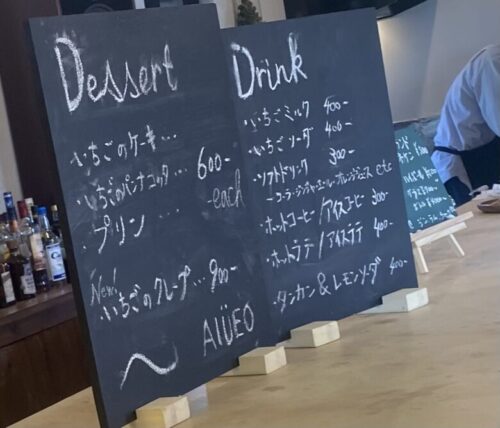 Dessert
・いちごのケーキ...
・いちごのパンナコッタ... 600-
each
・プリン ...
New!
・いちごのクレープ... 900-
AIÜEO
Drink
・いちごミルク 400-
・いちごソーダ 400-
・ソフトドリンク 300-
-コーラ・ジンジャーエール・オレンジジュース etc
・ホットコーヒー/アイスコーヒー 300-
・ホットラテ/アイスラテ 400-
・タンカン&レモンソーダ 400-